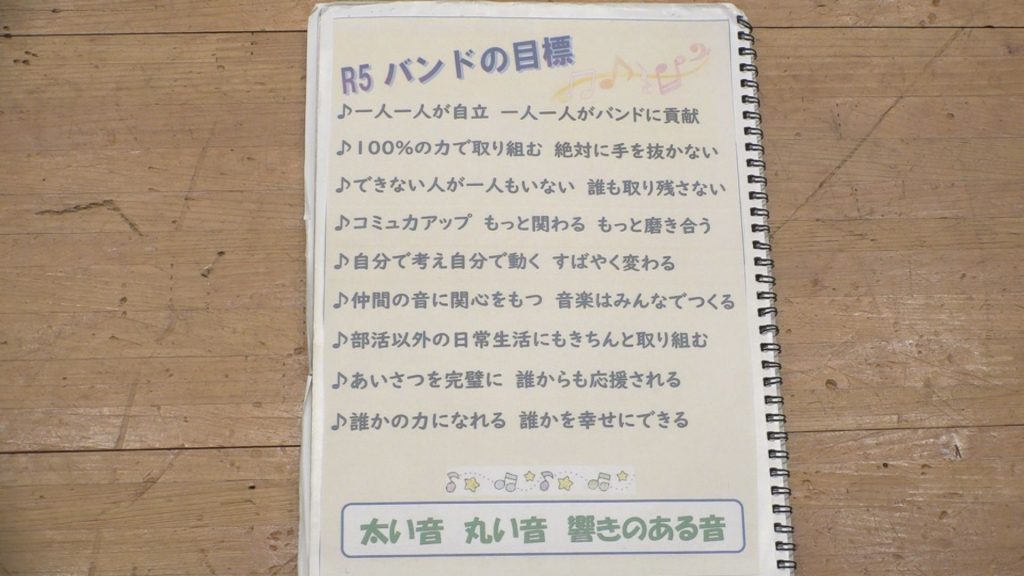 R5 バンドの目標
♪一人一人が自立 一人一人がバンドに貢献
♪100%の力で取り組む 絶対に手を抜かない
♪できない人が一人もいない 誰も取り残さない
♪コミュ力アップ もっと関わる もっと磨き合う
♪自分で考え自分で動く すばやく変わる
♪仲間の音に関心をもつ 音楽はみんなでつくる
♪部活以外の日常生活にもきちんと取り組む
♪あいさつを完璧に 誰からも応援される
♪誰かの力になれる 誰かを幸せにできる
太い音 丸い音 響きのある音